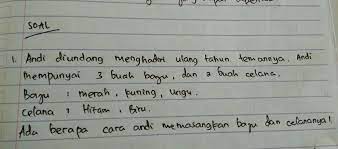 SOAL
1. Andi diundang menghadiri ulang tahun temannya. Andi
mempunyai 3 buah baju, dan 2 buah celana.
Baju : merah, kuning, ungu.
Celana : Hitam, Biru.
Ada berapa cara andi memasangkan baju dan celananya!